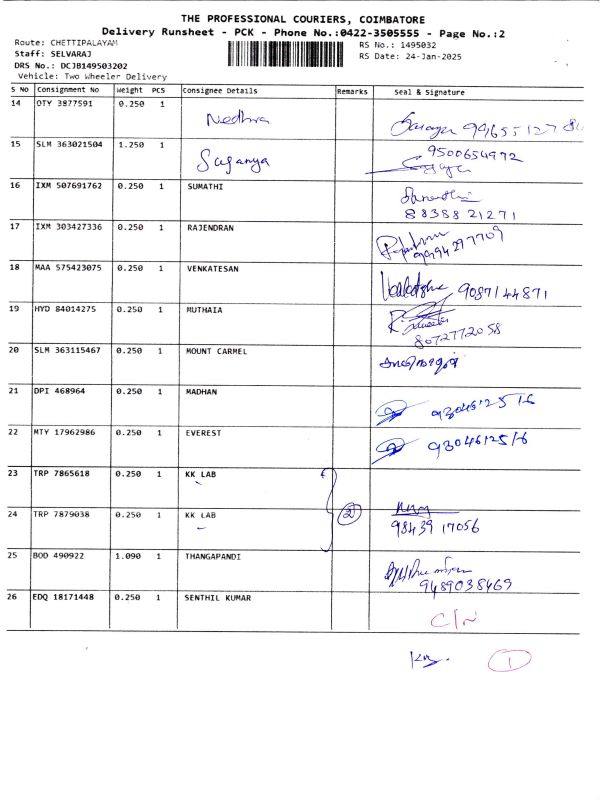 THE PROFESSIONAL COURIERS, COIMBATORE
Delivery Runsheet - PCK - Phone No.:0422-3505555 - Page No.:2
Route: CHETTIPALAYAM
RS No.: 1495032
Staff: SELVARAJ
RS Date: 24-Jan-2025
DRS No.: DCJB149503202
Vehicle: Two Wheeler Delivery
S No Consignment No Weight PCS Consignee Details Remarks Seal & Signature
14 OTY 3877591 0.250 1 Nedhra
15 SLM 363021504 1.250 1 Suganya 9500654972
16 IXM 507691762 0.250 1 SUMATHI
88388 21271
17 IXM 303427336 0.250 1 RAJENDRAN
18 MAA 575423075 0.250 1 VENKATESAN 9087144871
19 HYD 84014275 0.250 1 MUTHAIA
8072772058
20 SLM 363115467 0.250 1 MOUNT CARMEL
21 DPI 468964 0.250 1 MADHAN 9304612516
22 MTY 17962986 0.250 1 EVEREST 9304612516
23 TRP 7865618 0.250 1 KK LAB
24 TRP 7879038 0.250 1 KK LAB 2
98439 17056
25 BOD 490922 1.090 1 THANGAPANDI
9489038469
26 EDQ 18171448 0.250 1 SENTHIL KUMAR
1